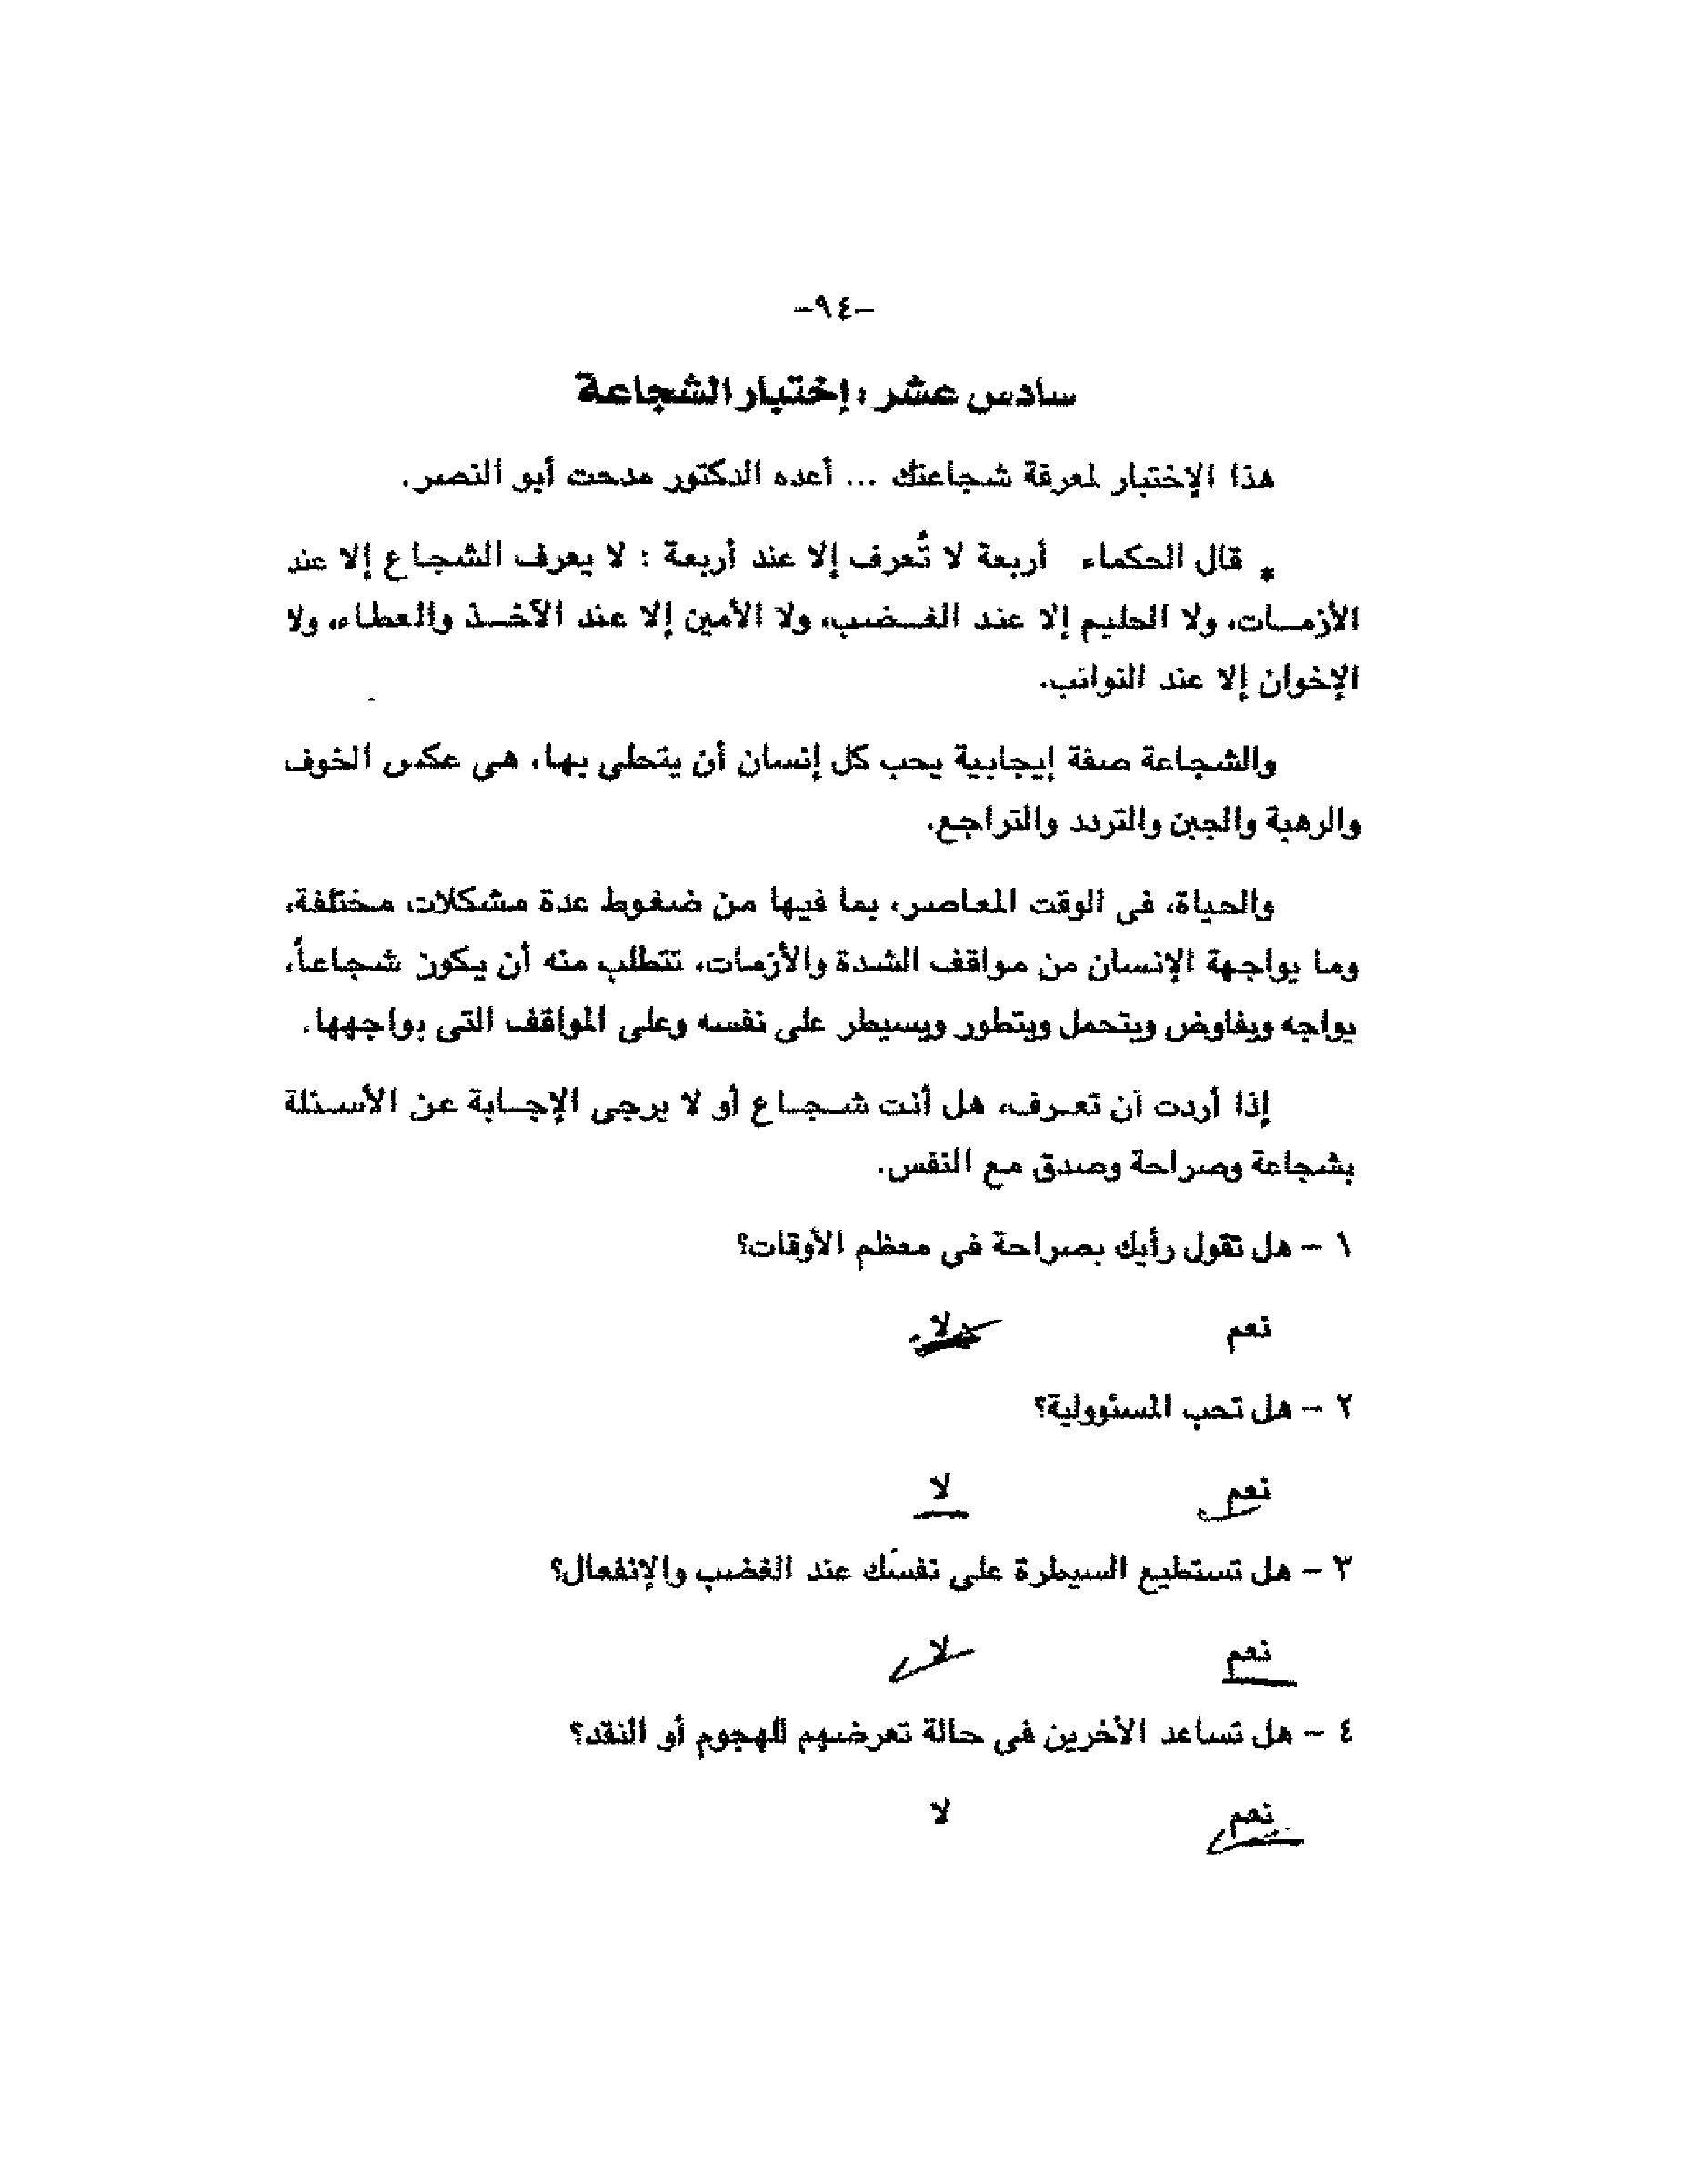 -٩٤-
سادس عشر : إختبار الشجاعة
هذا الإختبار لمعرفة شجاعتك ... أعده الدكتور مدحت أبو النصر.
* قال الحكماء أربعة لا تُعرف إلا عند أربعة : لا يعرف الشجاع إلا عند
الأزمات، ولا الحليم إلا عند الغضب، ولا الأمين إلا عند الآخذ والعطاء، ولا
الإخوان إلا عند النوائب.
والشجاعة صفة إيجابية يحب كل إنسان أن يتحلى بها، هى عكس الخوف
والرهبة والجبن والتردد والتراجع.
والحياة، فى الوقت المعاصر، بما فيها من ضغوط عدة مشكلات مختلفة،
وما يواجهة الإنسان من مواقف الشدة والأزمات، تتطلب منه أن يكون شجاعاً،
يواجه ويفاوض ويتحمل ويتطور ويسيطر على نفسه وعلى المواقف التى يواجهها.
إذا أردت أن تعرف، هل أنت شجاع أو لا يرجى الإجابة عن الأسئلة
بشجاعة وصراحة وصدق مع النفس.
١ - هل تقول رأيك بصراحة فى معظم الأوقات؟
نعم لا
٢ - هل تحب المسئوولية؟
نعم لا
٣ - هل تستطيع السيطرة على نفسك عند الغضب والإنفعال؟
نعم لا
٤ - هل تساعد الأخرين فى حالة تعرضهم للهجوم أو النقد؟
نعم لا